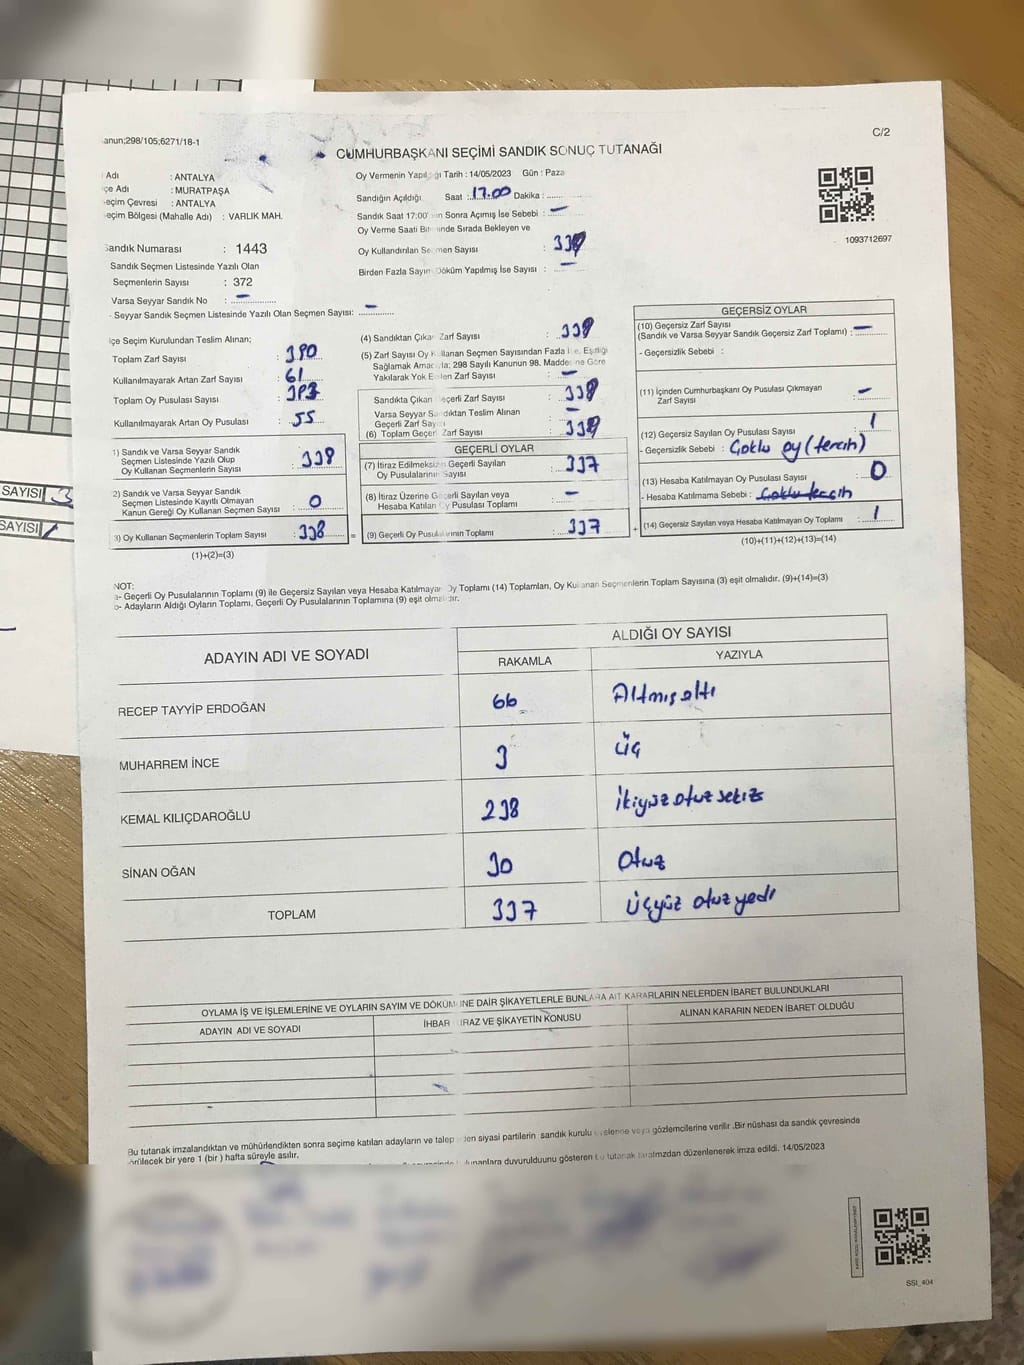 anun;298/105;6271/18-1
C/2
CUMHURBAŞKANI SEÇİMİ SANDIK SONUÇ TUTANAĞI
Adı : ANTALYA
çe Adı : MURATPAŞA
eçim Çevresi : ANTALYA
eçim Bölgesi (Mahalle Adı) : VARLIK MAH.
Sandık Numarası : 1443
Sandık Seçmen Listesinde Yazılı Olan
Seçmenlerin Sayısı : 372
Varsa Seyyar Sandık No : –
- Seyyar Sandık Seçmen Listesinde Yazılı Olan Seçmen Sayısı: –
Oy Vermenin Yapıldığı Tarih : 14/05/2023 Gün : Paza
Sandığın Açıldığı Saat : 17.00 Dakika :
Sandık Saat 17:00' Sonra Açımış İse Sebebi : –
Oy Verme Saati Bitiminde Sırada Bekleyen ve
Oy Kullandırılan Seçmen Sayısı :
Birden Fazla Sayım Döküm Yapılmış İse Sayısı : –
1093712697
lçe Seçim Kurulundan Teslim Alınan;
Toplam Zarf Sayısı : 390
Kullanılmayarak Artan Zarf Sayısı : 61
Toplam Oy Pusulası Sayısı :
Kullanılmayarak Artan Oy Pusulası : 55
1) Sandık ve Varsa Seyyar Sandık
Seçmen Listesinde Yazılı Olup
Oy Kullanan Seçmenlerin Sayısı : 338
2) Sandık ve Varsa Seyyar Sandık
Seçmen Listesinde Kayıtlı Olmayan
Kanun Gereği Oy Kullanan Seçmen Sayısı : 0
3) Oy Kullanan Seçmenlerin Toplam Sayısı : 338 =
(1)+(2)=(3)
(4) Sandıktan Çıkan Zarf Sayısı : 338
(5) Zarf Sayısı Oy Kullanan Seçmen Sayısından Fazla İse, Eşitliği
Sağlamak Amacıyla; 298 Sayılı Kanunun 98. Maddesine Göre
Yakılarak Yok Edilen Zarf Sayısı : –
Sandıkta Çıkan Geçerli Zarf Sayısı : 338
Varsa Seyyar Sandıktan Teslim Alınan
Geçerli Zarf Sayısı : –
(6) Toplam Geçerli Zarf Sayısı : 338
GEÇERLİ OYLAR
(7) İtiraz Edilmeksizin Geçerli Sayılan
Oy Pusulalarının Sayısı : 337
(8) İtiraz Üzerine Geçerli Sayılan veya
Hesaba Katılan Oy Pusulası Toplamı : –
(9) Geçerli Oy Pusulalarının Toplamı : 337 +
GEÇERSİZ OYLAR
(10) Geçersiz Zarf Sayısı
(Sandık ve Varsa Seyyar Sandık Geçersiz Zarf Toplamı) : –
- Geçersizlik Sebebi :
(11) İçinden Cumhurbaşkanı Oy Pusulası Çıkmayan
Zarf Sayısı : –
(12) Geçersiz Sayılan Oy Pusulası Sayısı : 1
- Geçersizlik Sebebi : Çoklu oy (tercih)
(13) Hesaba Katılmayan Oy Pusulası Sayısı : 0
- Hesaba Katılmama Sebebi : Çoklu tercih
(14) Geçersiz Sayılan veya Hesaba Katılmayan Oy Toplamı : 1
(10)+(11)+(12)+(13)=(14)
SAYISI 3
SAYISI
NOT:
a- Geçerli Oy Pusulalarının Toplamı (9) ile Geçersiz Sayılan veya Hesaba Katılmayan Oy Toplamı (14) Toplamları, Oy Kullanan Seçmenlerin Toplam Sayısına (3) eşit olmalıdır. (9)+(14)=(3)
b- Adayların Aldığı Oyların Toplamı, Geçerli Oy Pusulalarının Toplamına (9) eşit olmalıdır.
ADAYIN ADI VE SOYADI
ALDIĞI OY SAYISI
RAKAMLA YAZIYLA
RECEP TAYYİP ERDOĞAN 66 Altmış altı
MUHARREM İNCE 3 üç
KEMAL KILIÇDAROĞLU 238 ikiyüz otuz sekiz
SİNAN OĞAN 30 otuz
TOPLAM 337 üçyüz otuz yedi
OYLAMA İŞ VE İŞLEMLERİNE VE OYLARIN SAYIM VE DÖKÜMÜNE DAİR ŞİKAYETLERLE BUNLARA AİT KARARLARIN NELERDEN İBARET BULUNDUKLARI
ADAYIN ADI VE SOYADI İHBAR İTİRAZ VE ŞİKAYETİN KONUSU ALINAN KARARIN NEDEN İBARET OLDUĞU
Bu tutanak imzalandıktan ve mühürlendikten sonra seçime katılan adayların ve talep eden siyasi partilerin sandık kurulu üyelerine veya gözlemcilerine verilir .Bir nüshası da sandık çevresinde
görülecek bir yere 1 (bir ) hafta süreyle asılır.
duyurulduunu gösteren bu tutanak tarafımızdan düzenlenerek imza edildi. 14/05/2023
SSİ_404